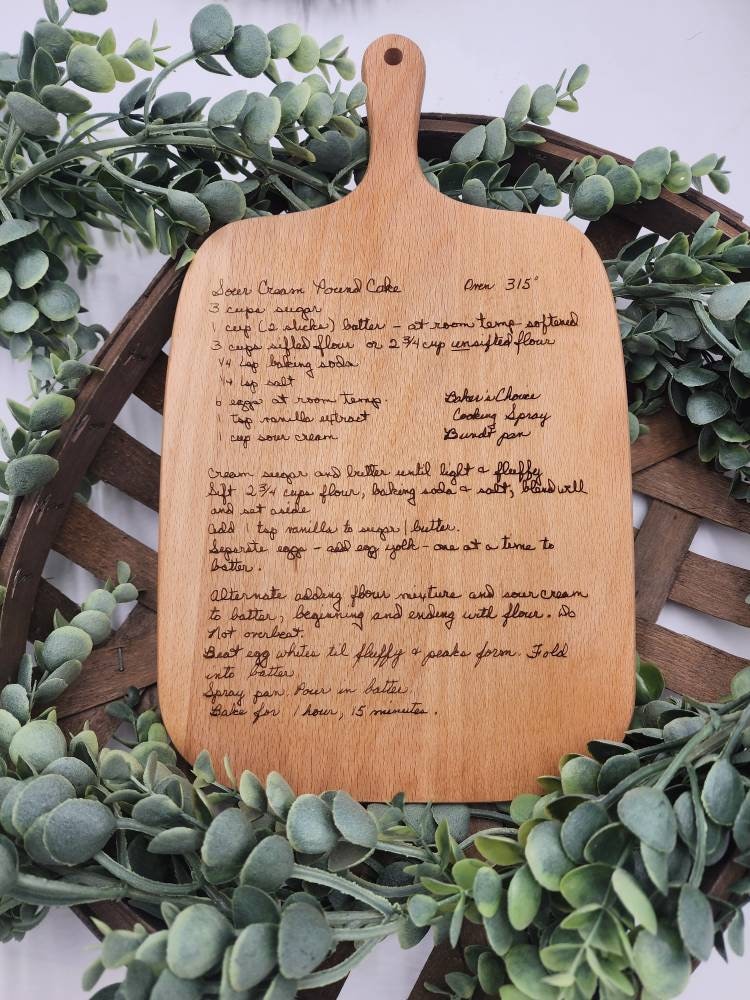 Sour Cream Pound Cake Oven 315°
3 cups sugar
1 cup (2 sticks) butter - at room temp softened
3 cups sifted flour or 2 3/4 cup unsifted flour
1/4 tsp baking soda
1/4 tsp salt
6 eggs at room temp.
1 tsp vanilla extract
1 cup sour cream
Baker's Choice
Cooking Spray
Bundt pan
Cream sugar and butter until light & fluffy
Sift 2 3/4 cups flour, baking soda & salt, blend well
and set aside
Add 1 tsp vanilla to sugar / butter.
Separate eggs - add egg yolk - one at a time to
batter.
Alternate adding flour mixture and sour cream
to batter, beginning and ending with flour. Do
Not overbeat.
Beat egg whites til fluffy & peaks form. Fold
into batter
Spray pan. Pour in batter.
Bake for 1 hour, 15 minutes.